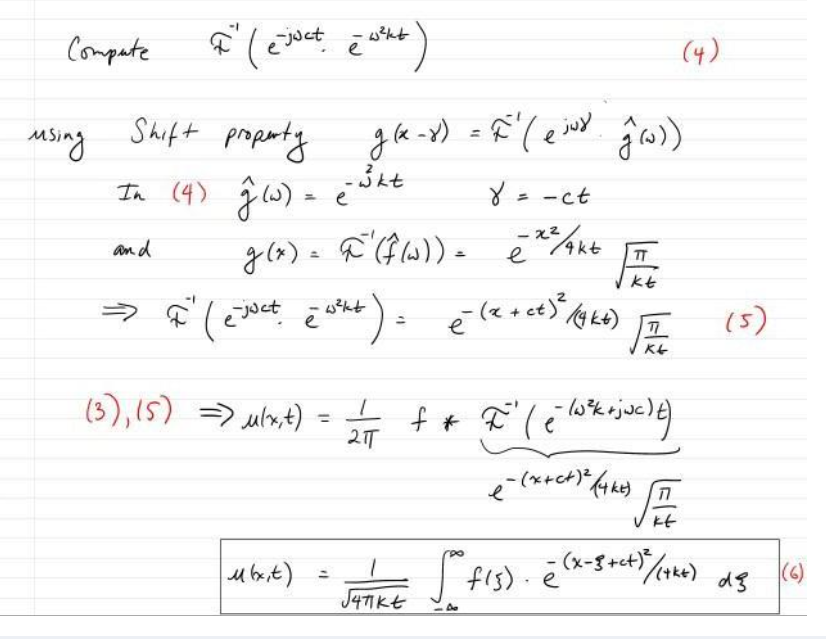 Compute ℱ⁻¹( e^{-jωct} . e^{-ω²kt} ) (4)
using Shift property g(x-γ) = ℱ⁻¹( e^{jωγ} ĝ(ω))
In (4) ĝ(ω) = e^{-ω²kt} γ = -ct
and g(x) = ℱ⁻¹(f̂(ω)) = e^{-x²/4kt} √(π/kt)
⇒ ℱ⁻¹( e^{-jωct} . e^{-ω²kt} ) = e^{-(x+ct)²/(4kt)} √(π/kt) (5)
(3),(5) ⇒ u(x,t) = 1/2π f * ℱ⁻¹( e^{-(ω²k+jωc)t} )
e^{-(x+ct)²/(4kt)} √(π/kt)
u(x,t) = 1/√(4πkt) ∫_{-∞}^{∞} f(ξ) · e^{-(x-ξ+ct)²/(4kt)} dξ (6)